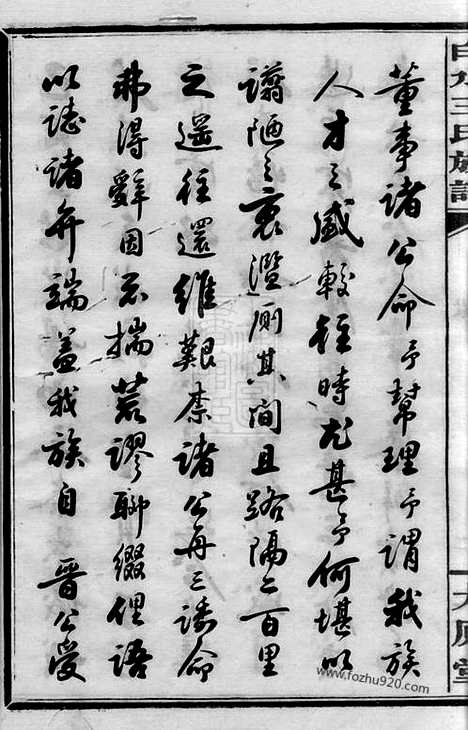 白水王氏族譜
太原堂
董事諸公命予幫理予謂我族
人才之盛較往時尤甚予何堪以
譾陋之衷濫厠其間且路隔二百里
之遥往還維艱奈諸公再三諉命
弗得辭因不揣荒謬聊綴俚語
以誌諸弁端蓋我族自 晉公受
www.fozhu920.com